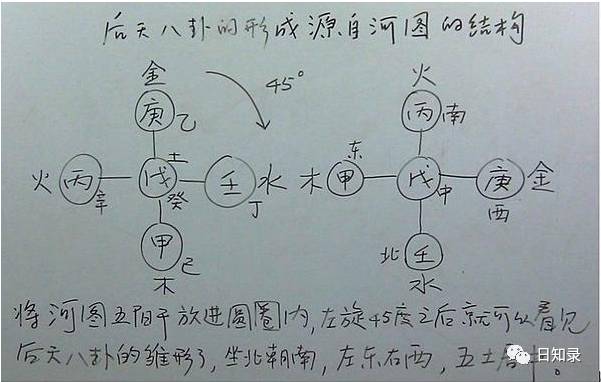 后天八卦的形成源自河图的结构
金 火
45°
庚 乙 丙 南
土 东
火 丙 戊 壬 水 木 甲 戊 庚 金
辛 癸 丁 中 西
甲 己 北 壬
木 水
将河图五阳干放进圆圈内,左旋45度之后就可以看见
后天八卦的雏形了,坐北朝南,左东右西,五土居中。
日知录